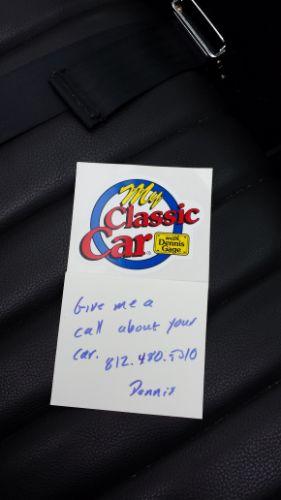 My
Classic
Car
with
Dennis
Gage
Give me a
call about your
car. 812.480.5010
Dennis